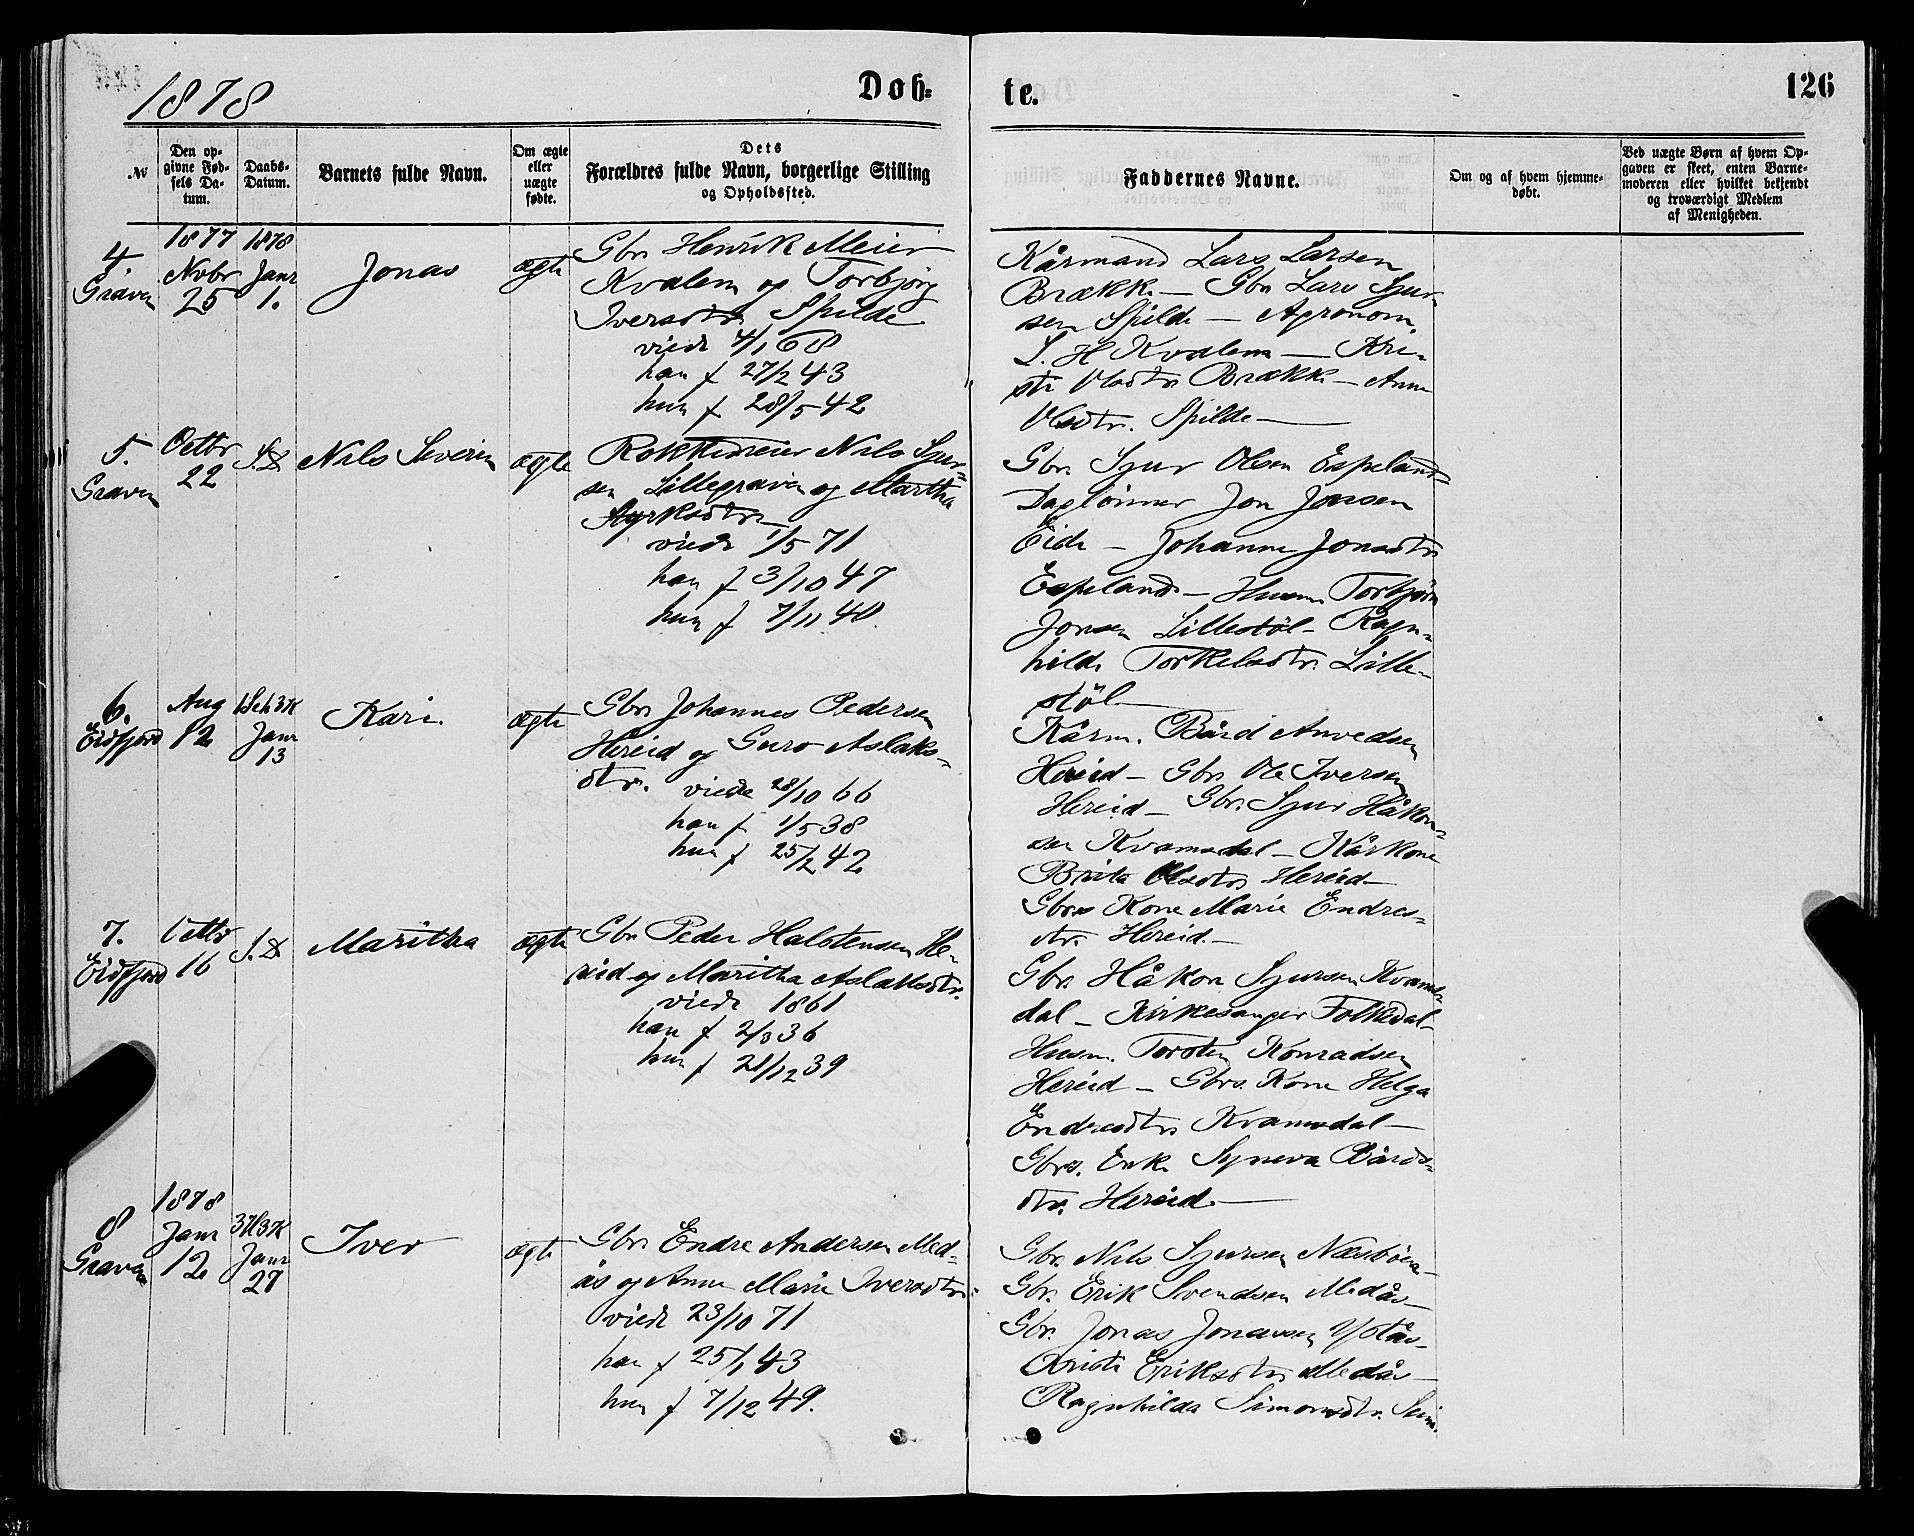 1878
Døb-
te.
126
№
Den op-
givne Fød-
sels Da-
tum.
Daabs-
Datum.
Barnets fulde Navn.
Om ægte
eller
uægte
fødte.
Dets
Forældres fulde Navn, borgerlige Stilling
og Opholdssted.
Faddernes Navne.
Om og af hvem hjemme-
døbt.
Ved uægte Børn af hvem Op-
gaven er skeet, enten Barne-
moderen eller hvilket bekjendt
og troværdigt Medlem
af Menigheden.
4.
Graven
1877
Novbr
25
1878
Janr
1.
Jonas
ægte
Gbr. Henrik Meier
Kvalem og Torbjörg
Iversdtr. Spilde
viede 4/1 68
han f 27/2 43
hun f 28/5 42
Kårmand Lars Larsen
Brække — Gbr. Lars Sjur-
sen Spilde — Agronom
S. H Kvalem — Kri-
sti Olsdtr. Brække — Anna
Olsdtr. Spilde —
5.
Graven
Octbr
22
S.D
Nils Severin
ægte
Rokkedreier Nils Sjur-
sen Lillegraven og Martha
Styrksdtr.
viede 1/5 71
han f 3/10 47
hun f 7/11 48
Gbr. Sjur Olsen Espeland-
Daglönner Jon Jonsen
Eide — Johanna Jonsdtr.
Espeland — Husm. Torbjörn
Jonsen Lillestöl — Ragn-
hilde Torkelsdtr. Lille-
stöl —
6.
Eidfjord
Aug
12
1S e h 3 K
Janr
13
Kari.
ægte
Gbr. Johannes Pedersen
Hereid og Guro Aslaks-
dtr. viede 28/10 66
han f 1/5 38
hun f 25/2 42
Kårm. Bård Anvedsen
Hereid — Gbr. Ole Iversen
Hereid — Gbr. Sjur Håkon-
sen Kvamsdal — Kårkone
Brita Olsdtr. Hereid —
Gbrs Kone Marie Endres-
dtr. Hereid. —
7.
Eidfjord
Octbr
16
S.D
Maritha
ægte
Gbr. Peder Halstensen He-
reid og Maritha Aslaksdtr.
viede 1861
han f 2/3 36
hun f 21/12 39
Gbr. Håkon Sjursen Kvams-
dal — Kirkesanger Folkedal —
Husm. Torsten Konradsen
Hereid — Gbrs. Kone Helga
Endresdtr. Kvamsdal —
Gbrs. Enke Synneva Bårds-
dtr. Hereid. —
8
Graven
1878
Janr
12
3 H 3 K
Janr
27
Iver
ægte
Gbr. Endre Andersen Med-
ås og Anna Marie Iversdtr.
viede 23/10 71
han f 25/1 43
hun f 7/12 49.
Gbr. Nils Sjursen Næsböen —
Gbr. Erik Svendsen Medås —
Gbr. Jonas Jonassen Ystås —
Kristi Eriksdtr. Medås —
Ragnhilda Simonsdtr. Seim.